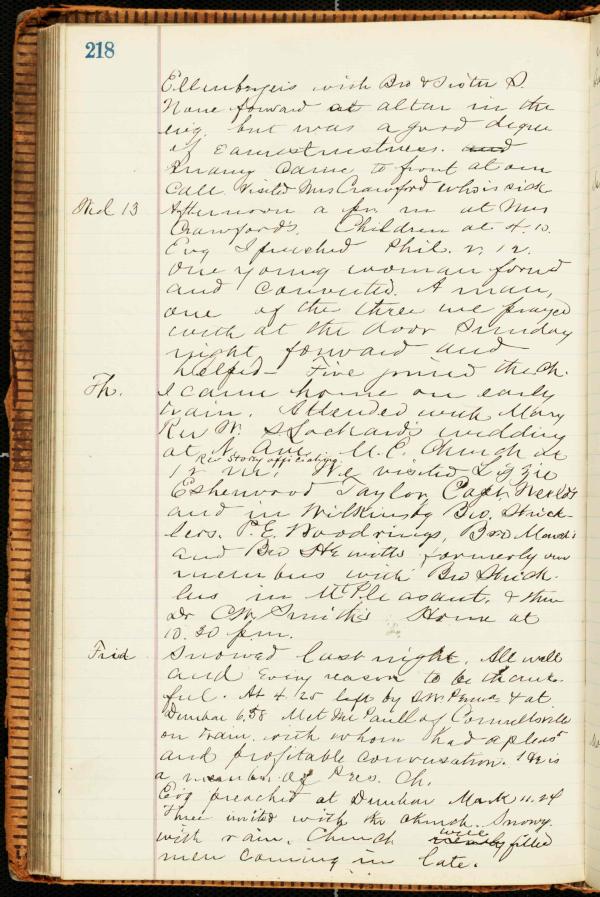 218
with Bro & Sister S.
None forward at altar in the
evg. but was a good degree
of earnestness. and
many came to front at our
call. Visited Mrs Crawford who is sick
Wed 13 Afternoon a pr. m at Mrs
Crawford's. Children at 4.10.
Evg I preached Phil. 2. 12.
One young woman forwd
and converted. A man,
one of the three we prayed
with at the door Sunday
night forward and
helped - Five joined the Ch.
Th. I came home on early
train. Attended with Mary
Rev W. S Lockard's wedding
at N. Ave. M. E. Church at
Rev Story officiating
12 m. We visited Lizzie
Esherwood Taylor, Capt
and in Wilkinsbg Bro. Strick-
lers. P. E. Woodrings, Bro
and Bro formerly our
members with Bro Strick-
lers in Mt Pleasant. & then
Dr C W. Smith's Home at
10.30 pm.
Frid Snowed last night. All well
and every reason to be thank-
ful. At 4.25 left by S.W. Penna & at
Dunbar 6.58 Met Mr Paull of Connellsville
on train, with whom had a pleast
and profitable conversation. He is
a member of Pres. Ch.
Evg preached at Dunbar Mark 11.24
Three united with the church. Snowy
with rain. Church nearly well filled
men coming in late.